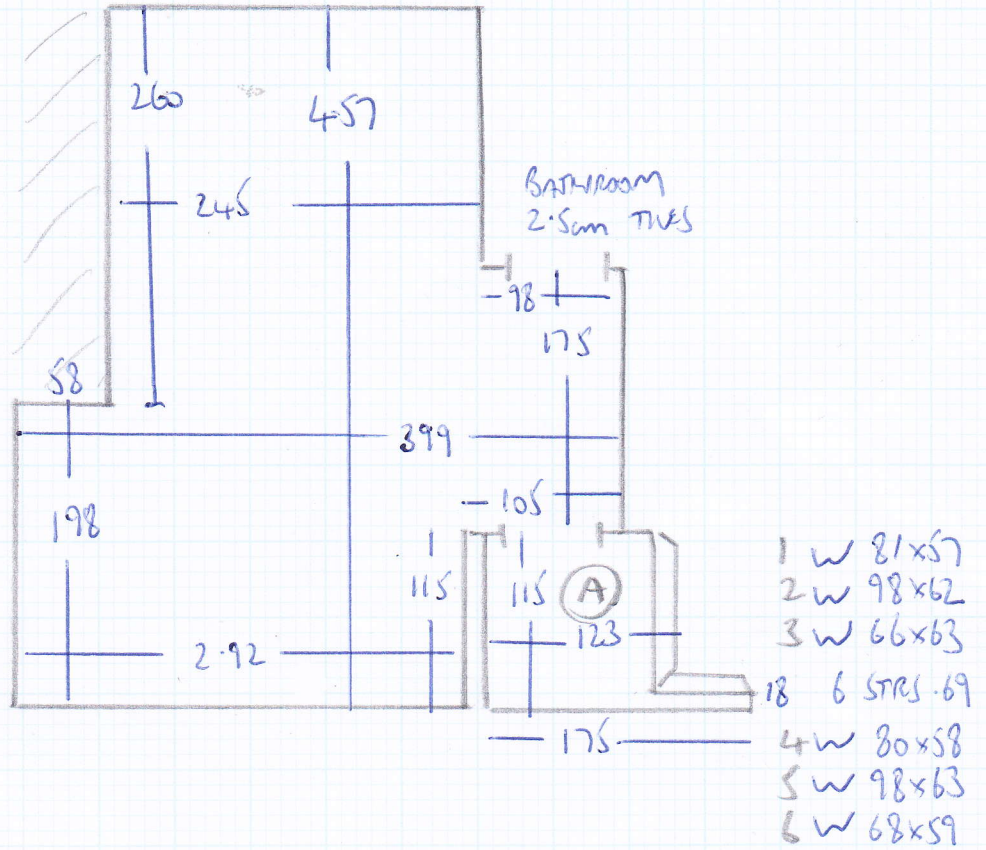 260
457
245
BATHROOM
2.5cm TILES
98
175
58
399
198
105
115
115
A
123
2.92
175
1 W 81x57
2 W 98x62
3 W 66x63
18 6 STRS .69
4 W 80x58
5 W 98x63
6 W 68x59